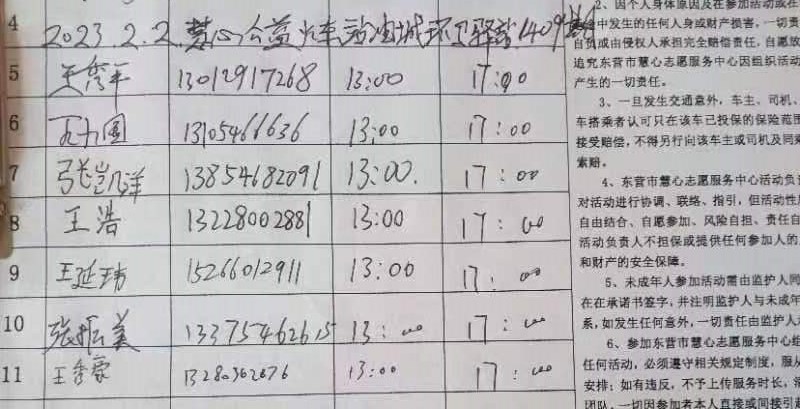 4 2023.2.2.慧心公益火车站油城环卫驿站1409
5 王秀平 13012917268 13:00 17:00
6 13105466636 13:00 17:00
7 张凯洋 13854682091 13:00. 17:00
8 王浩 13228002881 13:00 17:00
9 王延玮 15266012911 13:00 17:00
10 张振美 13375462615 13:00 17:00
11 王秀蒙 13280362676 13:00 17:00
2、因个人身体原因及在参加活动或在
中发生的任何人身或财产损害，一切责
自负或由侵权人承担完全赔偿责任，自愿放
追究东营市慧心志愿服务中心因组织活动
产生的一切责任。
3、一旦发生交通意外，车主、司机、
车搭乘者认可只在该车已投保的保险范围
接受赔偿，不得另行向该车主或司机及同乘
索赔。
4、东营市慧心志愿服务中心活动负责
对活动进行协调、联络、指引，但活动性质
自由结合、自愿参加、风险自担、责任自
活动负责人不担保或提供任何参加人的人
和财产的安全保障。
5、未成年人参加活动需由监护人同
在在承诺书签字，并注明监护人与未成年
系，如发生任何意外，一切责任由监护人
6、参加东营市慧心志愿服务中心组
任何活动，必须遵守相关规定制度，服从
安排；如有违反，不予上传服务时长，清
团队，一切因参加者本人直接或间接引起